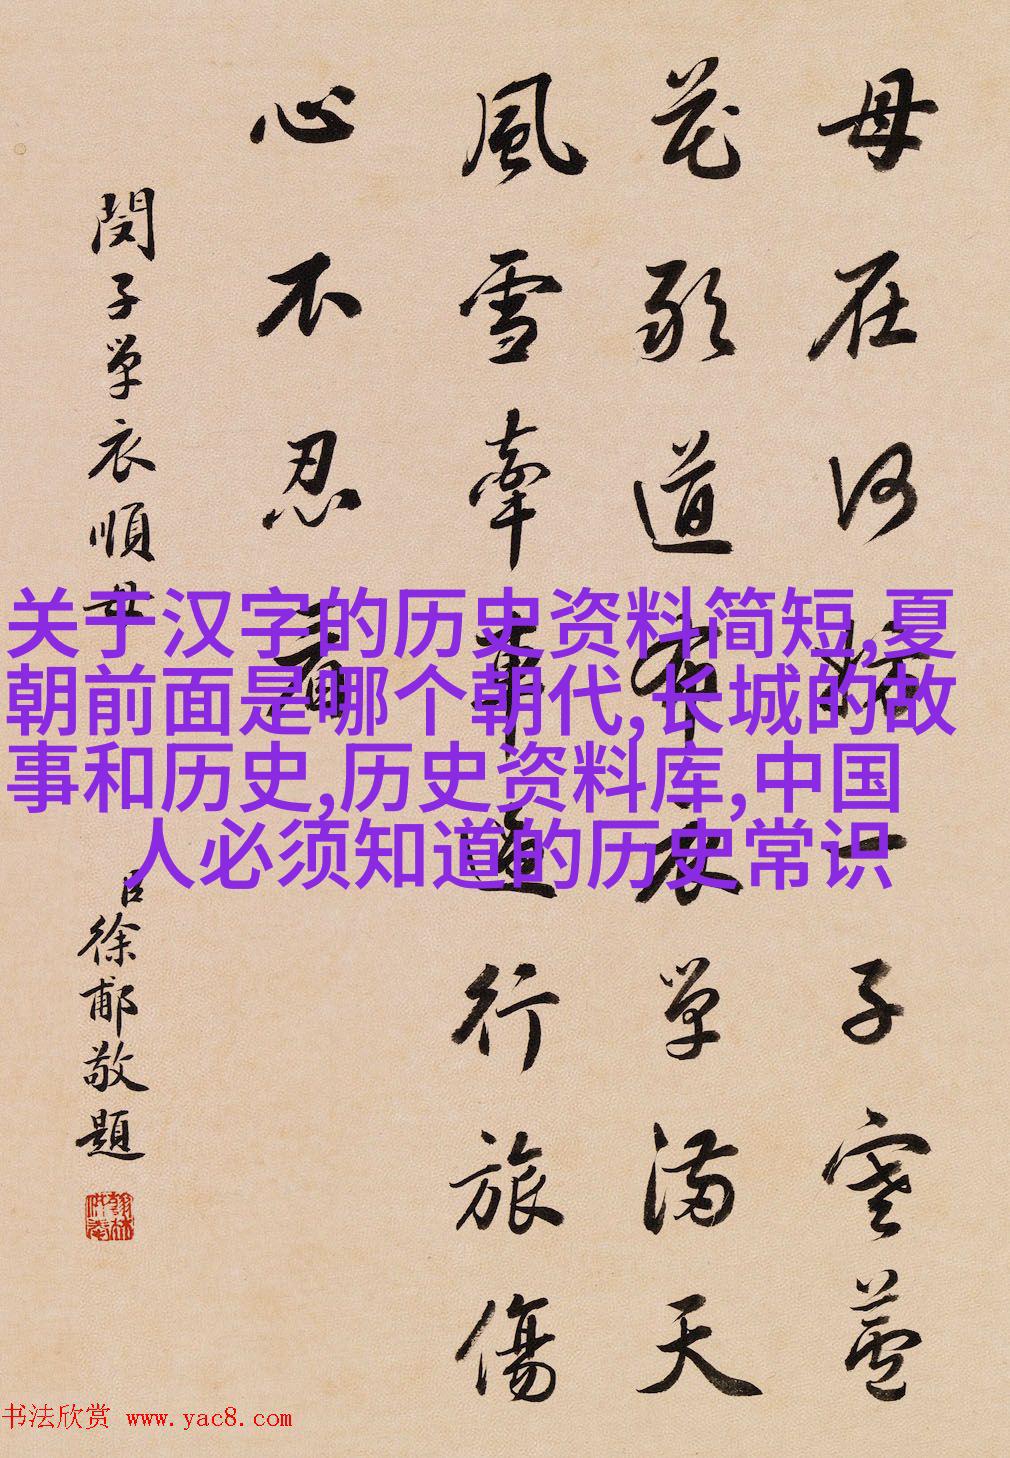 母在何妨一子寒蘆
花敢道有衣單滿天
風雪牽車行旅傷
心不忍看
閔子單衣順母
臣徐郙敬題
关于汉字的历史资料简短,夏
朝前面是哪个朝代,长城的故
事和历史,历史资料库,中国
人必须知道的历史常识
书法欣赏 www.yac8.com